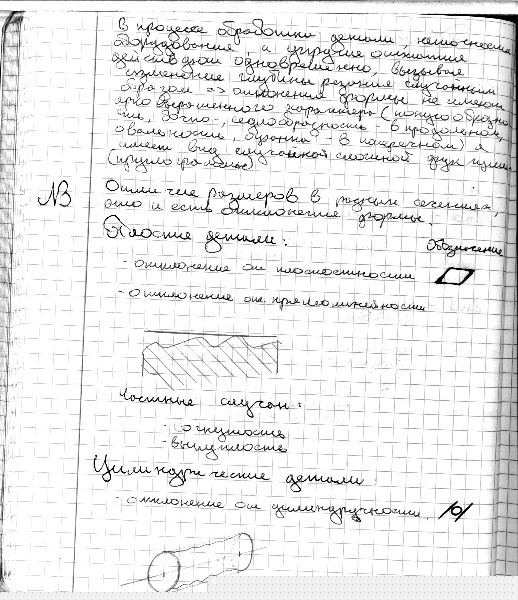 В процессе обработки детали неточности
оборудования и упругие
действуют одновременно, вызывая
изменение глубины резания случайным
образом => отклонения формы не имеют
ярко выраженного характера (конусообразно
сть, бочко-, седлообразность - в продольном,
овальность, огранка - в поперечном) а
имеет вид случайной сложной
(круглограммы)
N3
Отличие размеров в разных сечениях,
это и есть отклонение формы.
Плоские детали:
Обозначение
- отклонение от плоскостности
- отклонение от прямолинейности
Частные случаи:
- вогнутость
- выпуклость
Цилиндрические детали
- отклонение от цилиндричности